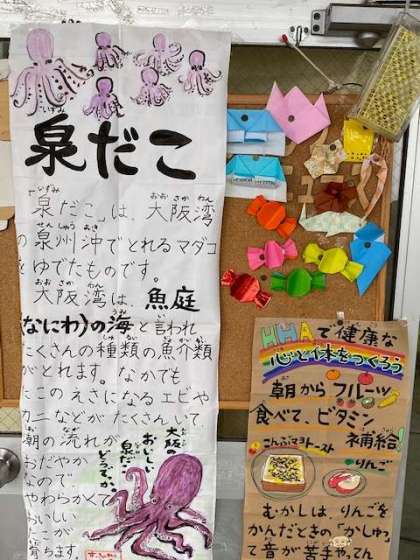 いずみ
泉だこ
いずみ おおさかわん
「泉だこ」は、大阪湾
せんしゅうおき
の泉州沖でとれるマダコ
をゆでたものです。
おおさかわん
大阪湾は、魚庭
(なにわ)の海と言われ
たくさんの種類の魚介類
がとれます。なかでも
たこのえさになるエビや
カニなどがたくさんいて
潮の流れが
おだやか
なので
やわらかくて
おいしい
たこが
育ちます。
大阪の
おいしい
泉だこ
どうぞ
HHAで健康な
心と体をつくろう
朝からフルーツ
食べて、ビタミン
補給!
こんぶマヨトースト
りんご
むかしは、りんごを
かんだときの「かしゅっ」
て音が苦手やってん